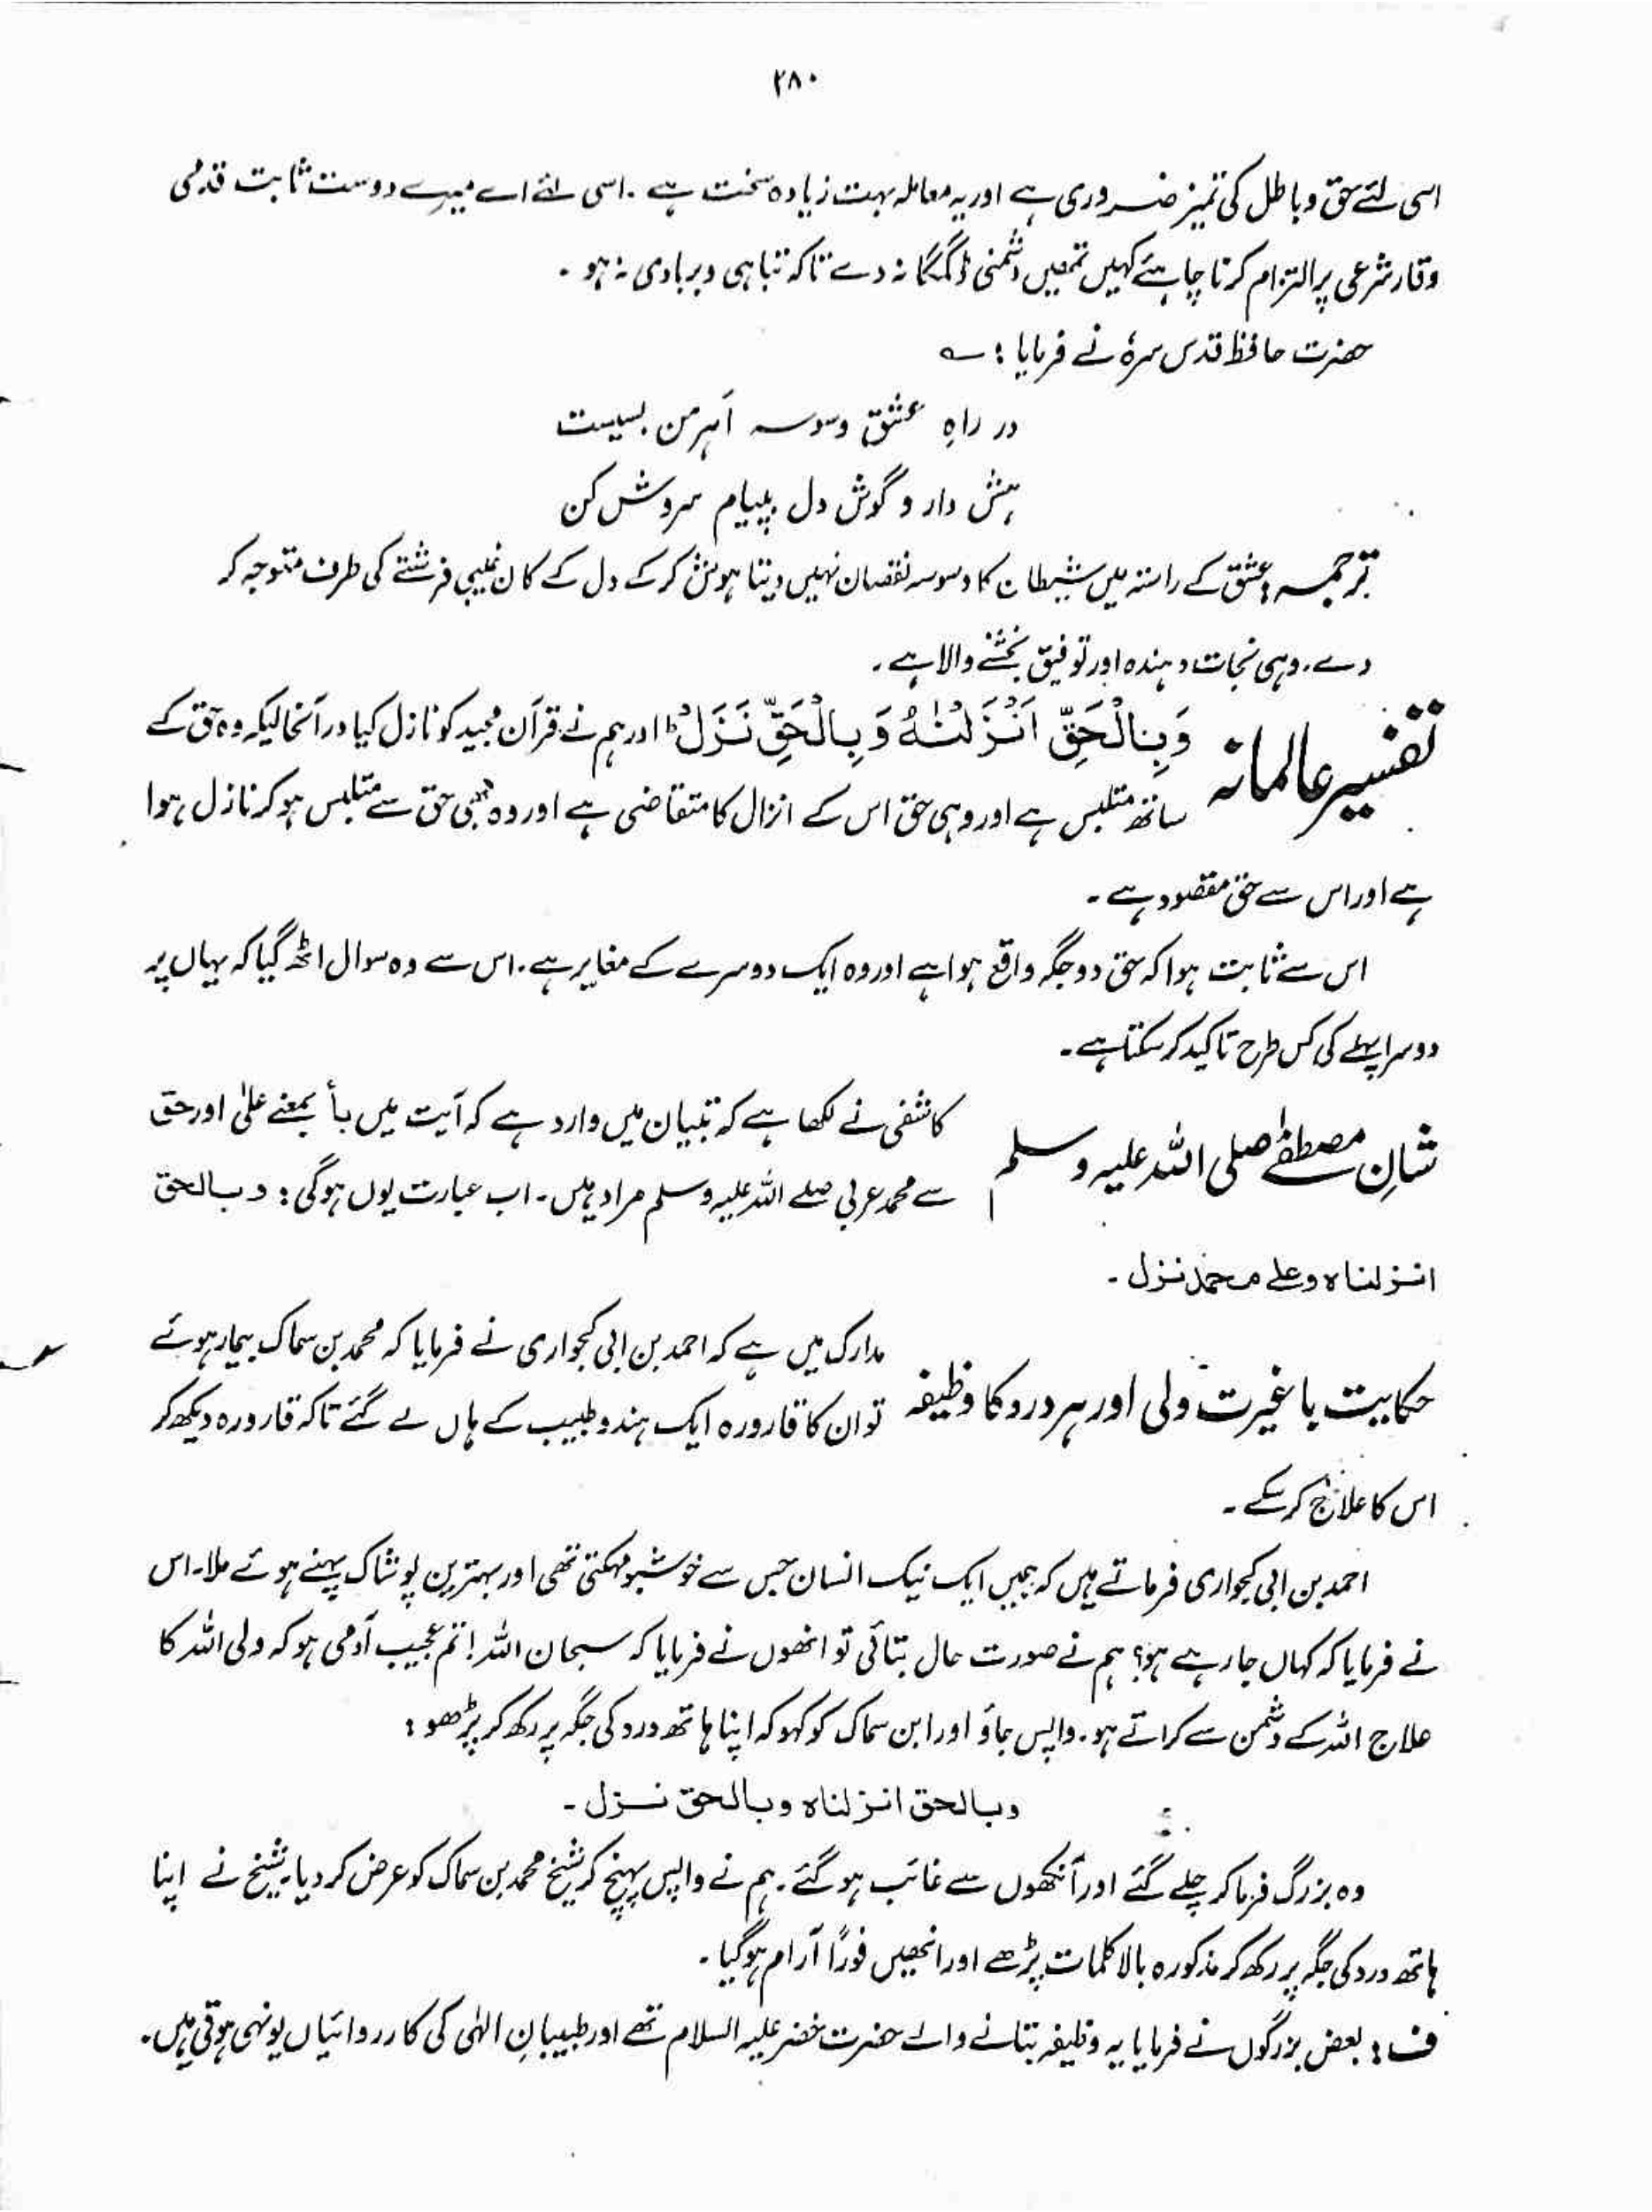 ۲۸۰
اسی لئے حق و باطل کی تمیز ضروری ہے اور یہ معاملہ بہت زیادہ سخت ہے ۔ اسی لئے اے میرے دوست ثابت قدمی
وقار شرعی پر التزام کرنا چاہئے کہیں تمھیں دشمنی ڈگمگا نہ دے تاکہ تباہی و بربادی نہ ہو ۔
حضرت حافظ قدس سرہٗ نے فرمایا : ؎
در راہِ عشق وسوسہ اہرمن بسیست
ہش دار و گوش دل بپیام سروش کن
ترجمہ : عشق کے راستہ میں شیطان کا وسوسہ نقصان نہیں دیتا ہوش کرکے دل کے کان غیبی فرشتے کی طرف متوجہ کر
دے ۔ وہی نجات دہندہ اور توفیق بخشنے والا ہے ۔
تفسیر عالمانہ وَبِالْحَقِّ اَنْزَلْنٰهُ وَبِالْحَقِّ نَزَلَ ؕ اور ہم نے قرآن مجید کو نازل کیا درآنحالیکہ وہ حق کے
ساتھ متلبس ہے اور وہی حق اس کے انزال کا متقاضی ہے اور وہ بھی حق سے متلبس ہو کر نازل ہوا
ہے اور اس سے حق مقصود ہے ۔
اس سے ثابت ہوا کہ حق دو جگہ واقع ہوا ہے اور وہ ایک دوسرے کے مغایر ہے ۔ اس سے وہ سوال اٹھ گیا کہ یہاں پر
دوسرا پہلے کی کس طرح تاکید کر سکتا ہے ۔
شانِ مصطفٰے صلی اللہ علیہ وسلم کاشفی نے لکھا ہے کہ تبیان میں وارد ہے کہ آیت میں بأ بمعنے علیٰ اور حق
سے محمد عربی صلے اللہ علیہ وسلم مراد ہیں ۔ اب عبارت یوں ہوگی : وبالحق
انزلناه وعلے محمد نزل ۔
حکایت با غیرت ولی اور ہر درد کا وظیفہ مدارک میں ہے کہ احمد بن ابی کجواری نے فرمایا کہ محمد بن سماک بیمار ہوئے
تو ان کا قارورہ ایک ہندو طبیب کے ہاں لے گئے تاکہ قارورہ دیکھ کر
اس کا علاج کر سکے ۔
احمد بن ابی کجواری فرماتے ہیں کہ ہمیں ایک نیک انسان جس سے خوشبو مہکتی تھی اور بہترین پوشاک پہنے ہوئے ملا ۔ اس
نے فرمایا کہ کہاں جا رہے ہو؟ ہم نے صورت حال بتائی تو انھوں نے فرمایا کہ سبحان اللہ ! تم عجیب آدمی ہو کہ ولی اللہ کا
علاج اللہ کے دشمن سے کراتے ہو ۔ واپس جاؤ اور ابن سماک کو کہو کہ اپنا ہاتھ درد کی جگہ پر رکھ کر پڑھو :
وبالحق انزلناه وبالحق نزل ۔
وہ بزرگ فرما کر چلے گئے اور آنکھوں سے غائب ہو گئے ۔ ہم نے واپس پہنچ کر شیخ محمد بن سماک کو عرض کر دیا ۔ شیخ نے اپنا
ہاتھ درد کی جگہ پر رکھ کر مذکورہ بالا کلمات پڑھے اور انھیں فوراً آرام ہوگیا ۔
ف : بعض بزرگوں نے فرمایا یہ وظیفہ بتانے والے حضرت خضر علیہ السلام تھے اور طبیبانِ الٰہی کی کارروائیاں یونہی ہوتی ہیں ۔